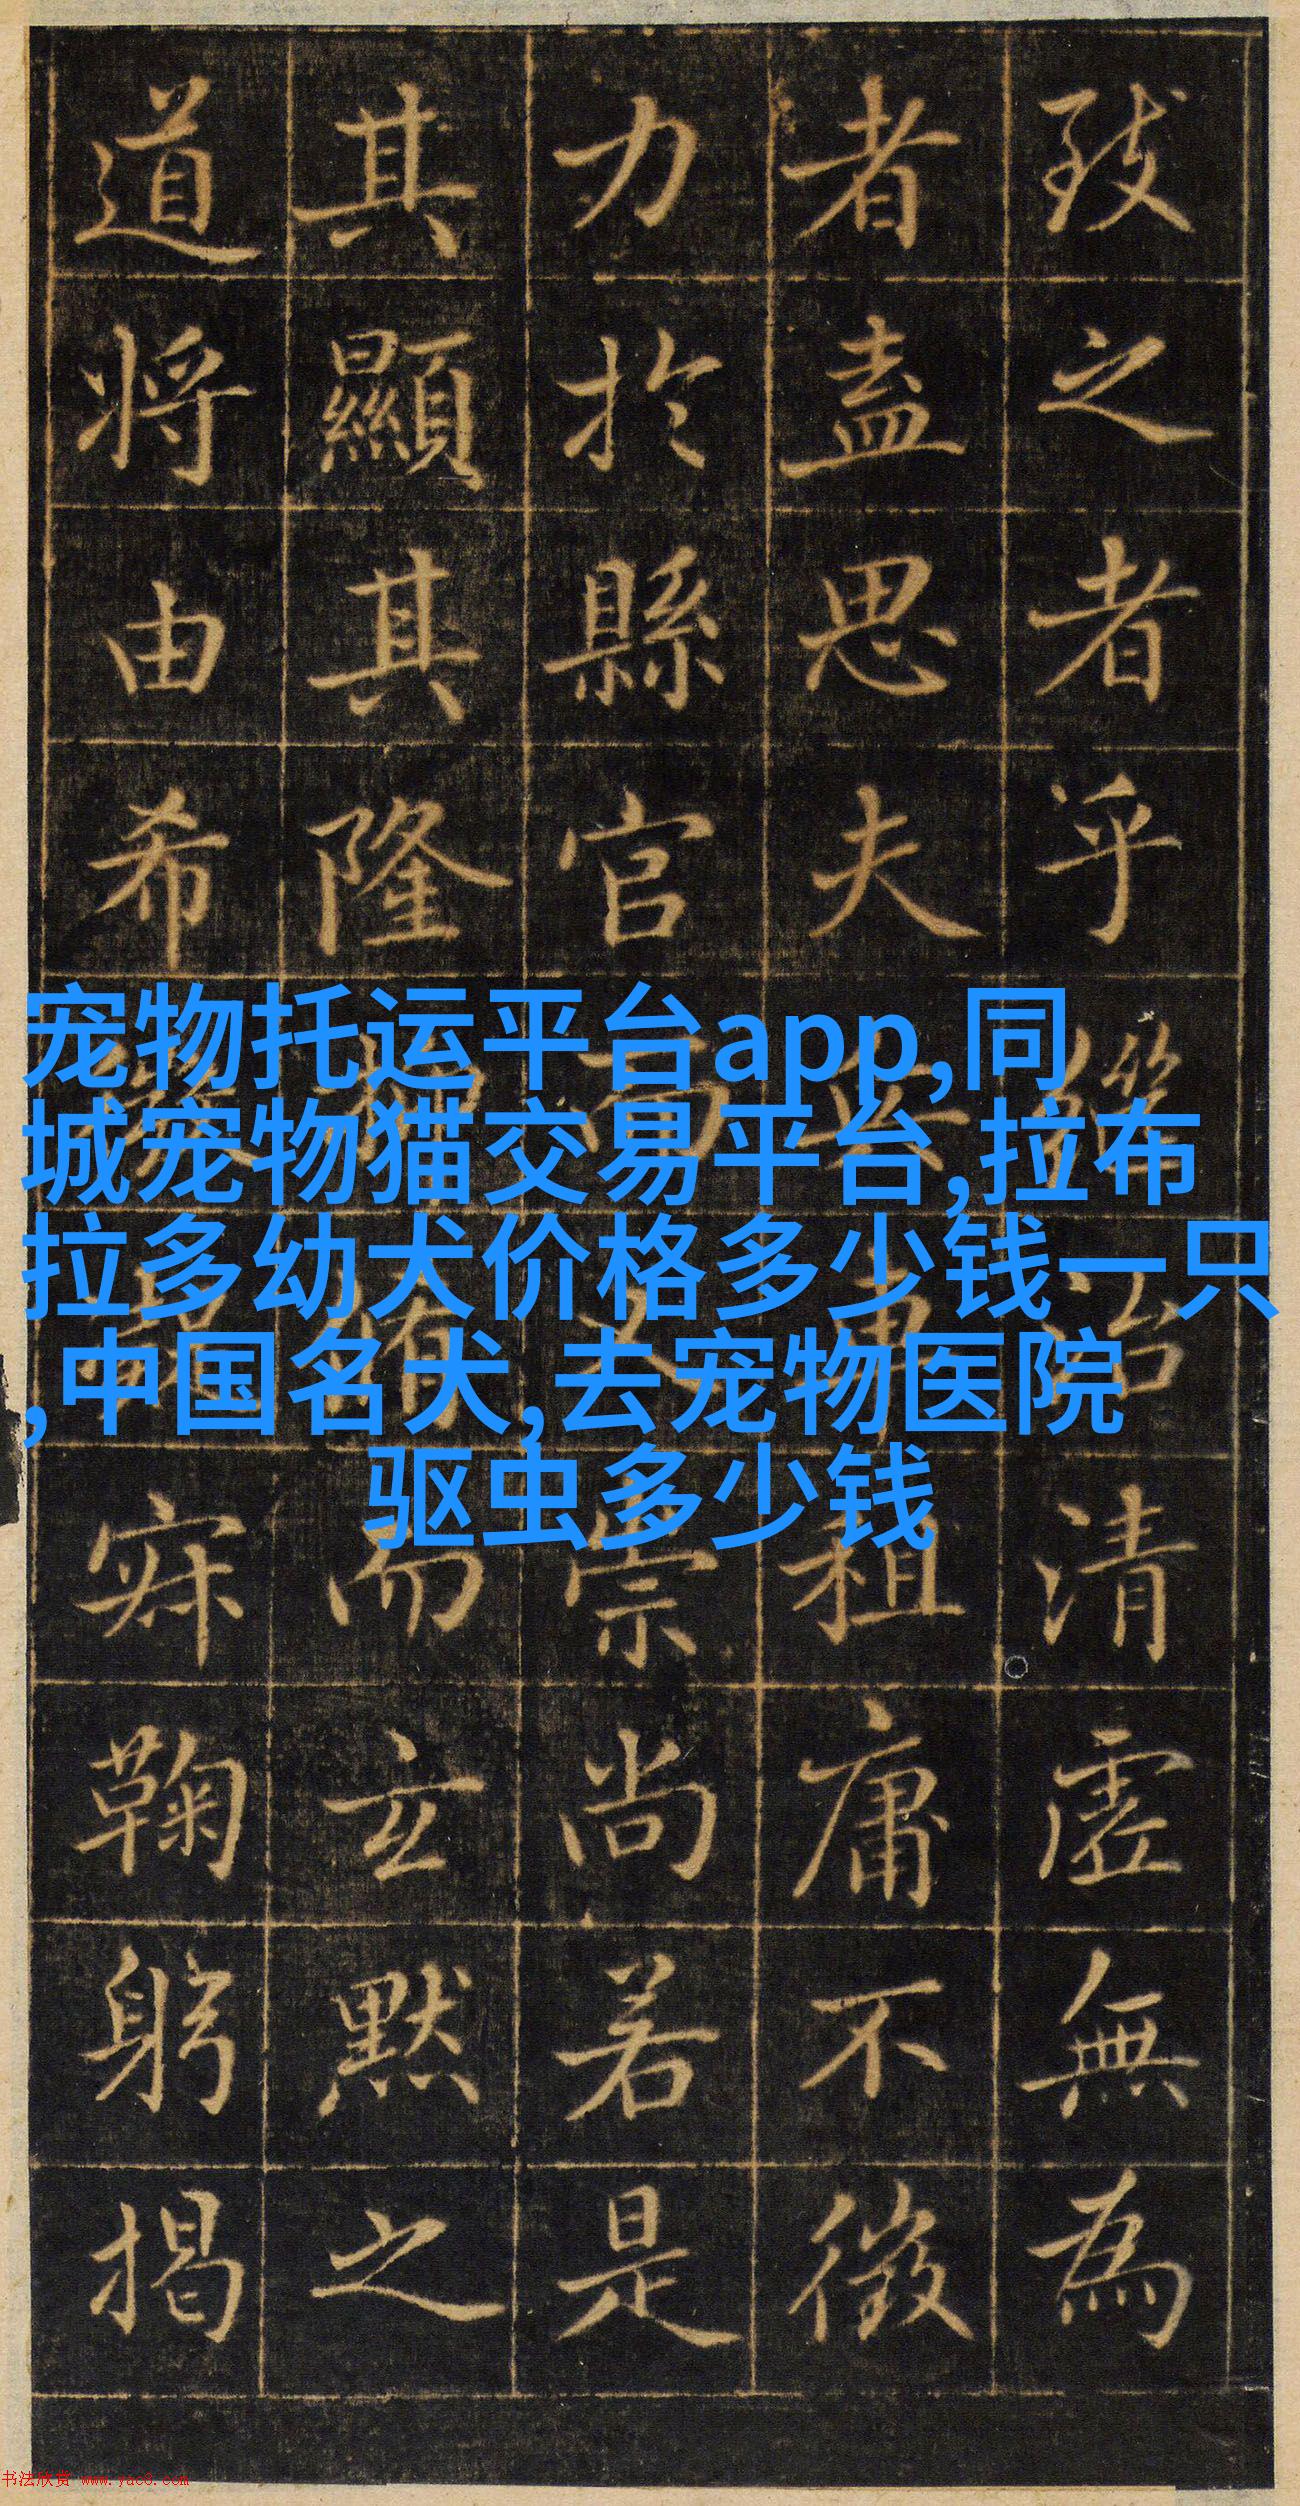 致之者乎繇治清虛無為
者盡思夫租庸不徵
力於縣官而又崇尚若是
其顯其隆有而玄默之
道將由希寐鞠躬揭
宠物托运平台app,同
城宠物猫交易平台,拉布
拉多幼犬价格多少钱一只
,中国名犬,去宠物医院
驱虫多少钱
书法欣赏 www.yac8.com